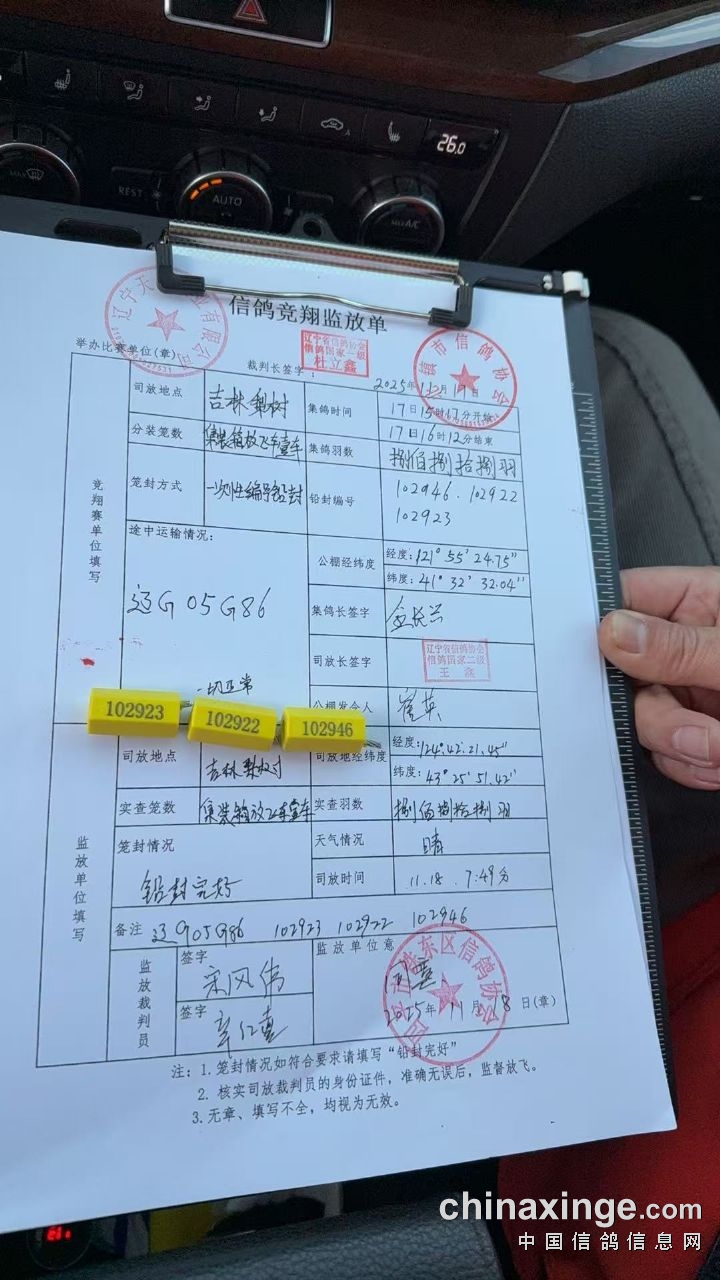 26.0
REST
AUTO
MAX A/C
信鸽竞翔监放单
举办比赛单位(章)
裁判长签字:
辽宁省信鸽协会
信鸽国家一级
杜立鑫
市信鸽协会
2025年11月17日
竞翔赛单位填写
司放地点
吉林梨树
集鸽时间
17日15时17分开始
17日16时12分结束
分装笼数
集装箱放飞车壹车
集鸽羽数
捌佰捌拾捌羽
笼封方式
一次性编号铅封
铅封编号
102946.102922
102923
途中运输情况:
辽G05G86
一切正常
公棚经纬度
经度:121°55′24.75″
纬度:41°32′32.04″
集鸽长签字
司放长签字
辽宁省信鸽协会
信鸽国家二级
王鑫
公棚发令人
崔英
102923
102922
102946
监放单位填写
司放地点
吉林梨树
司放地经纬度
经度:124°42′21.45″
纬度:43°25′51.42″
实查笼数
集装箱放飞车壹车
实查羽数
捌佰捌拾捌羽
笼封情况
铅封完好
天气情况
晴
司放时间
11.18.7:49分
备注
辽G05G86 102923 102922 102946
监放裁判员
签字
宋凤伟
签字
监放单位意
同意
铁东区信鸽协会
2025年11月18日(章)
注:1.笼封情况如符合要求请填写“铅封完好”
2.核实司放裁判员的身份证件,准确无误后,监督放飞。
3.无章、填写不全,均视为无效。
chinaxinge.com
中国信鸽信息网